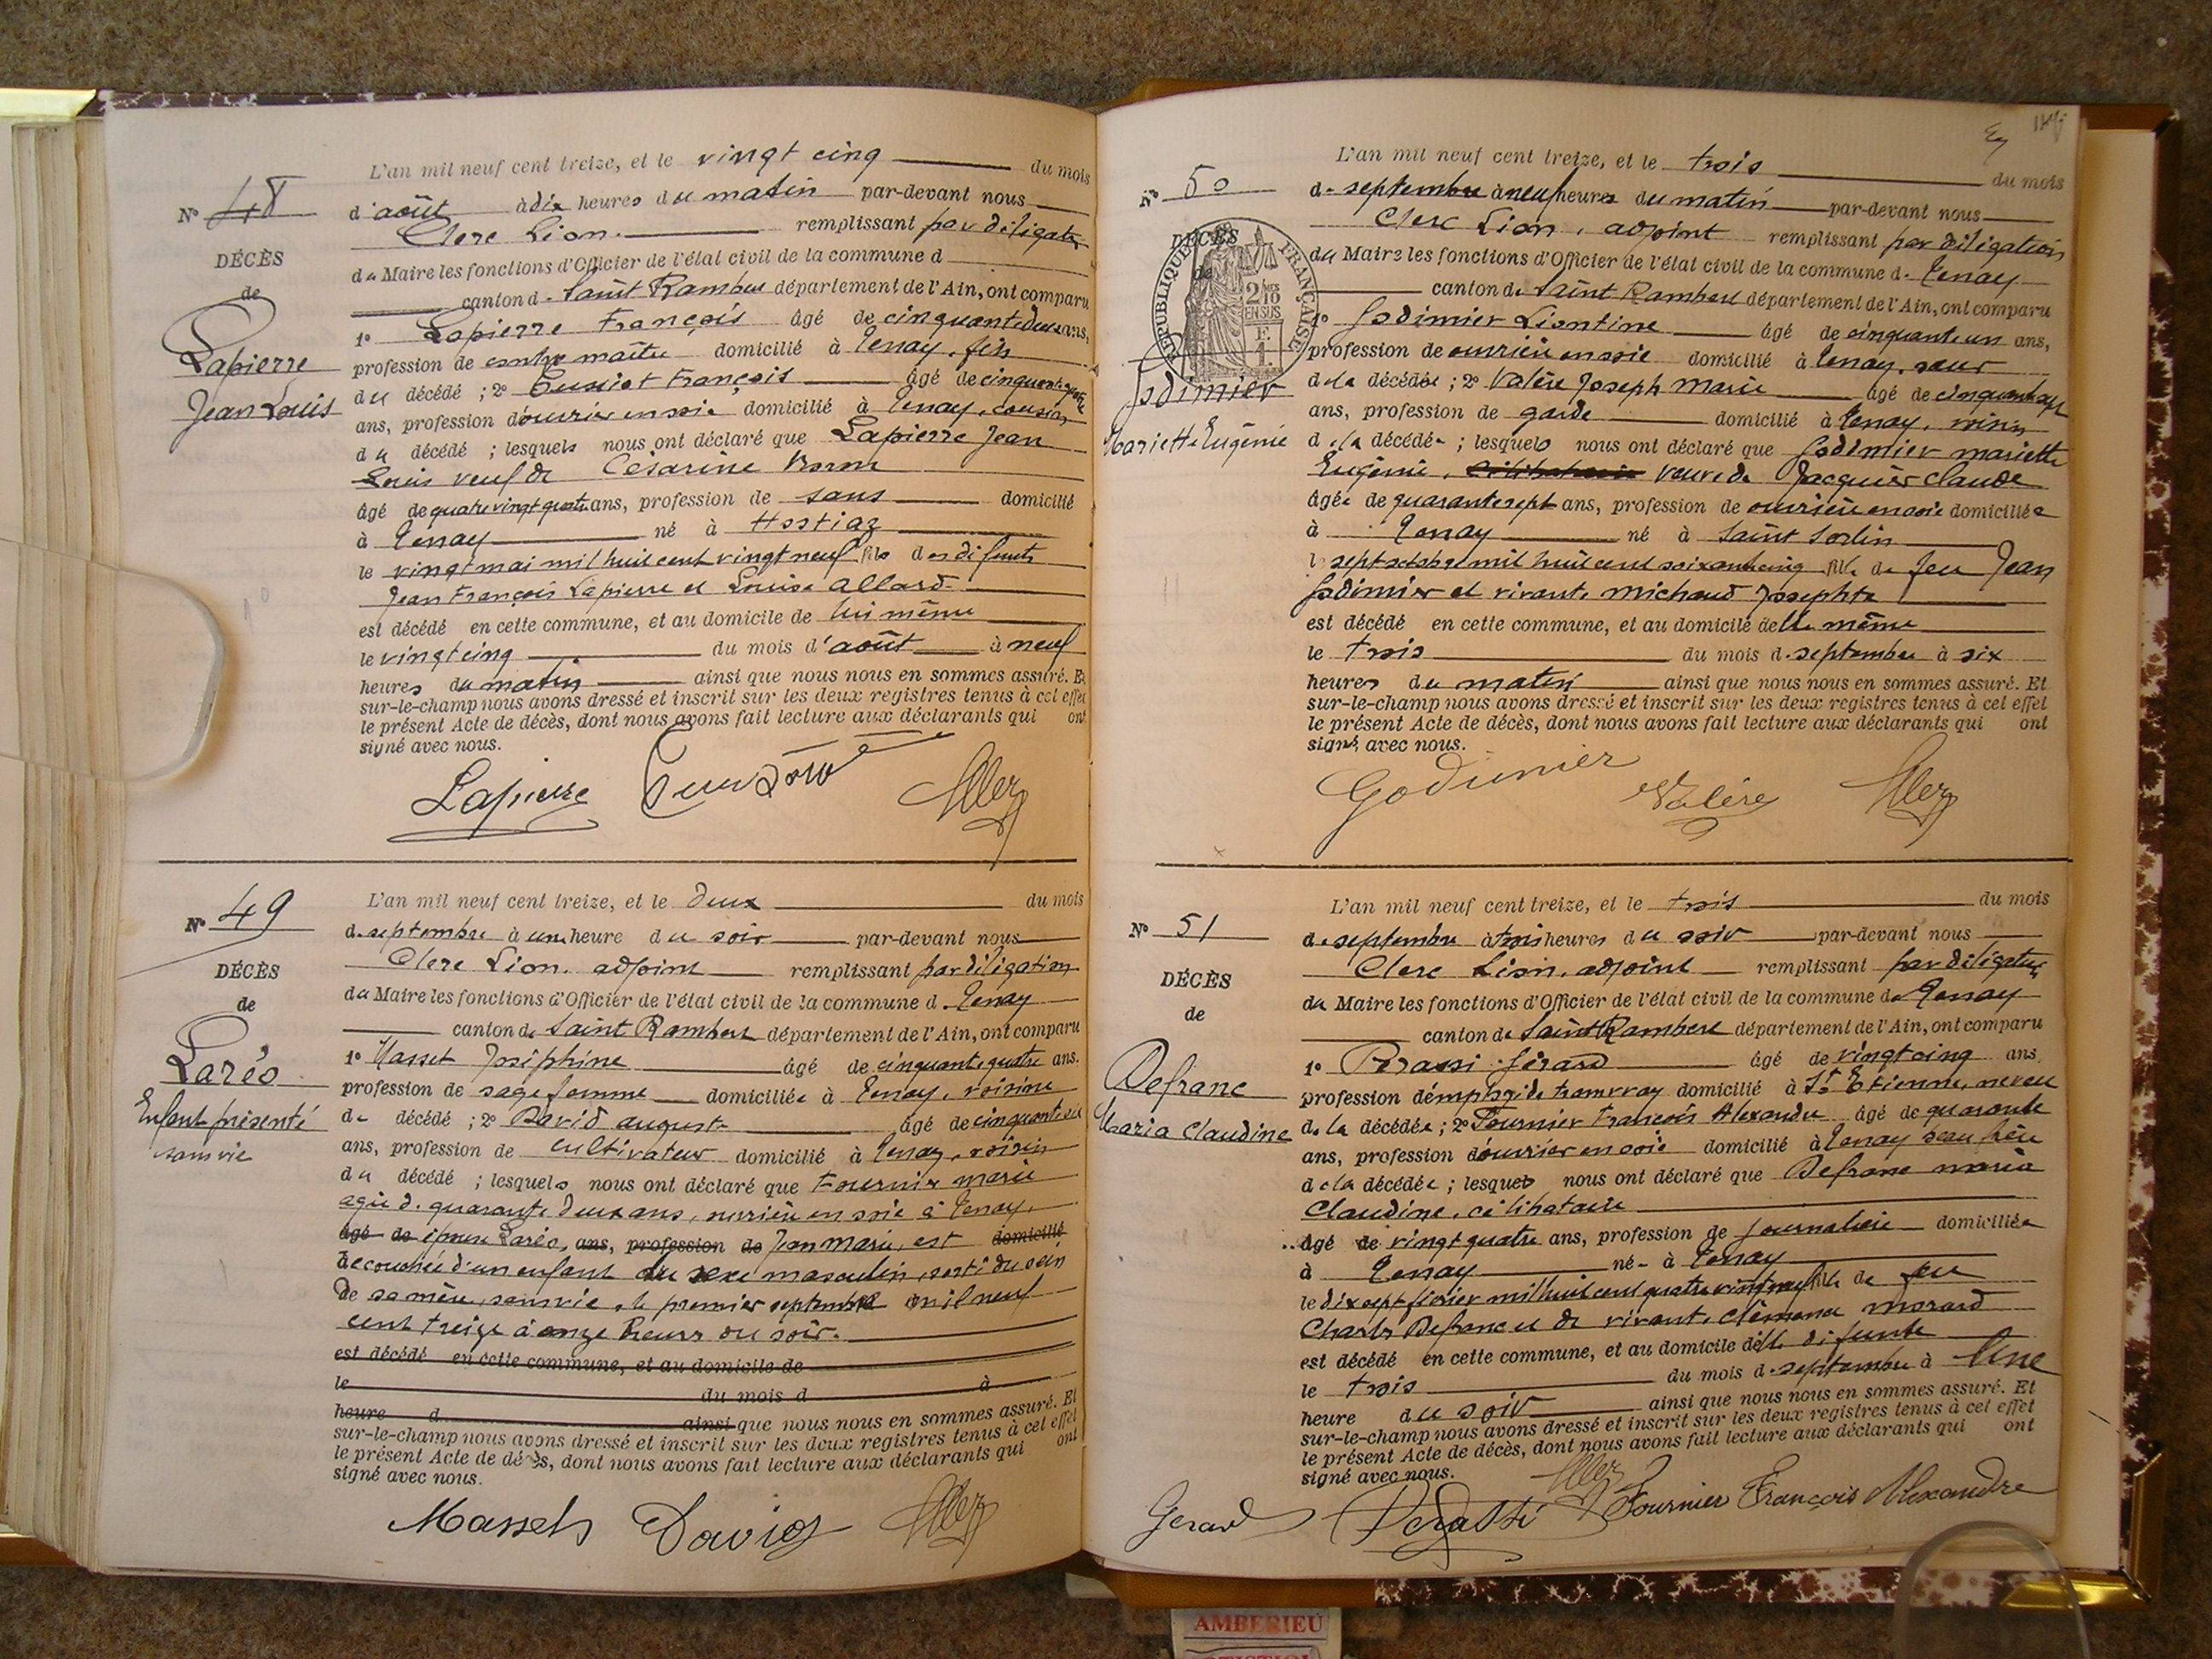 L'an mil neuf cent treize, et le vingt cinq du mois
d'août à dix heures du matin par-devant nous
N° 48
Clerc Léon remplissant par délégation
DÉCÈS
du Maire les fonctions d'Officier de l'état civil de la commune d
de
canton de Saint Rambert département de l'Ain, ont comparu
1° Lapierre François âgé de cinquante deux ans,
Lapierre
profession de contre maître domicilié à Tenay, fils
du décédé ; 2° François âgé de
Jean Louis
ans, profession d'ouvrier en soie domicilié à Tenay, cousin
du décédé ; lesquels nous ont déclaré que Lapierre Jean
Louis veuf de Césarine
âgé de quatre vingt quatre ans, profession de sans domicilié
à Tenay né à Hostiaz
le vingt mai mil huit cent vingt neuf fils des défunts
Jean François Lapierre et Louise Allard
est décédé en cette commune, et au domicile de lui même
le vingt cinq du mois d'août à neuf
heures du matin ainsi que nous nous en sommes assuré. Et
sur-le-champ nous avons dressé et inscrit sur les deux registres tenus à cet effet
le présent Acte de décès, dont nous avons fait lecture aux déclarants qui ont
signé avec nous.
Lapierre
L'an mil neuf cent treize, et le deux du mois
N° 49
de septembre à une heure du soir par-devant nous
Clerc Léon, adjoint remplissant par délégation
DÉCÈS
du Maire les fonctions d'Officier de l'état civil de la commune de Tenay
de
canton de Saint Rambert département de l'Ain, ont comparu
1° Masset Joséphine âgé de cinquante quatre ans.
Laréo
profession de sage femme domiciliée à Tenay, voisine
Enfant présenté
du décédé ; 2° David auguste âgé de
sans vie
ans, profession de cultivateur domicilié à Tenay, voisin
du décédé ; lesquels nous ont déclaré que Fournier marie
agée de quarante deux ans, ouvrière en soie à Tenay,
âgé de épouse Laréo, ans, profession de Jean Marie, est domicilié
accouchée d'un enfant du sexe masculin, sorti du sein
de sa mère, sans vie, le premier septembre mil neuf
cent treize à onze heures du soir.
est décédé en cette commune, et au domicile de
le du mois d à
heure d ainsi que nous nous en sommes assuré. Et
sur-le-champ nous avons dressé et inscrit sur les deux registres tenus à cet effet
le présent Acte de décès, dont nous avons fait lecture aux déclarants qui ont
signé avec nous.
Masset David
L'an mil neuf cent treize, et le trois du mois
N° 50
de septembre à neuf heures du matin par-devant nous
Clerc Léon, adjoint remplissant par délégation
DÉCÈS
de
RÉPUBLIQUE FRANÇAISE
2/10 EN SUS
du Maire les fonctions d'Officier de l'état civil de la commune de Tenay
canton de Saint Rambert département de l'Ain, ont comparu
1° Godimier Léontine âgé de cinquante un ans,
profession de ouvrière en soie domicilié à Tenay, sœur
Godimier
de la décédée ; 2° Valère Joseph Marie âgé de cinquante sept
ans, profession de garde domicilié à Tenay, voisin
Mariette Eugénie
de la décédée ; lesquels nous ont déclaré que Godimier mariette
Eugénie, célibataire veuve de Jacquier Claude
âgée de quarante sept ans, profession de ouvrière en soie domiciliée
à Tenay né à Saint Sorlin
le sept octobre mil huit cent soixante cinq fille de feu Jean
Godimier et vivante Michaud Josephte
est décédé en cette commune, et au domicile d'elle même
le trois du mois de septembre à six
heures du matin ainsi que nous nous en sommes assuré. Et
sur-le-champ nous avons dressé et inscrit sur les deux registres tenus à cet effet
le présent Acte de décès, dont nous avons fait lecture aux déclarants qui ont
signé avec nous.
Godimier Valère
L'an mil neuf cent treize, et le trois du mois
N° 51
de septembre à trois heures du soir par-devant nous
Clerc Léon, adjoint remplissant par délégation
DÉCÈS
du Maire les fonctions d'Officier de l'état civil de la commune de Tenay
de
canton de Saint Rambert département de l'Ain, ont comparu
1° Gérard âgé de vingt cinq ans,
Defranc
profession d'employé de tramway domicilié à St Etienne, neveu
Maria Claudine
de la décédée ; 2° Fournier François Alexandre âgé de quarante
ans, profession d'ouvrier en soie domicilié à Tenay beau frère
de la décédée ; lesquels nous ont déclaré que Defranc maria
Claudine, célibataire
âgé de vingt quatre ans, profession de journalière domiciliée
à Tenay né à Tenay
le dix sept février mil huit cent quatre vingt neuf fille de feu
Charles Defranc et de vivante Clémence Morard
est décédé en cette commune, et au domicile d'elle défunte
le trois du mois de septembre à Une
heure du soir ainsi que nous nous en sommes assuré. Et
sur-le-champ nous avons dressé et inscrit sur les deux registres tenus à cet effet
le présent Acte de décès, dont nous avons fait lecture aux déclarants qui ont
signé avec nous.
Gerard Fournier François Alexandre
AMBERIEU